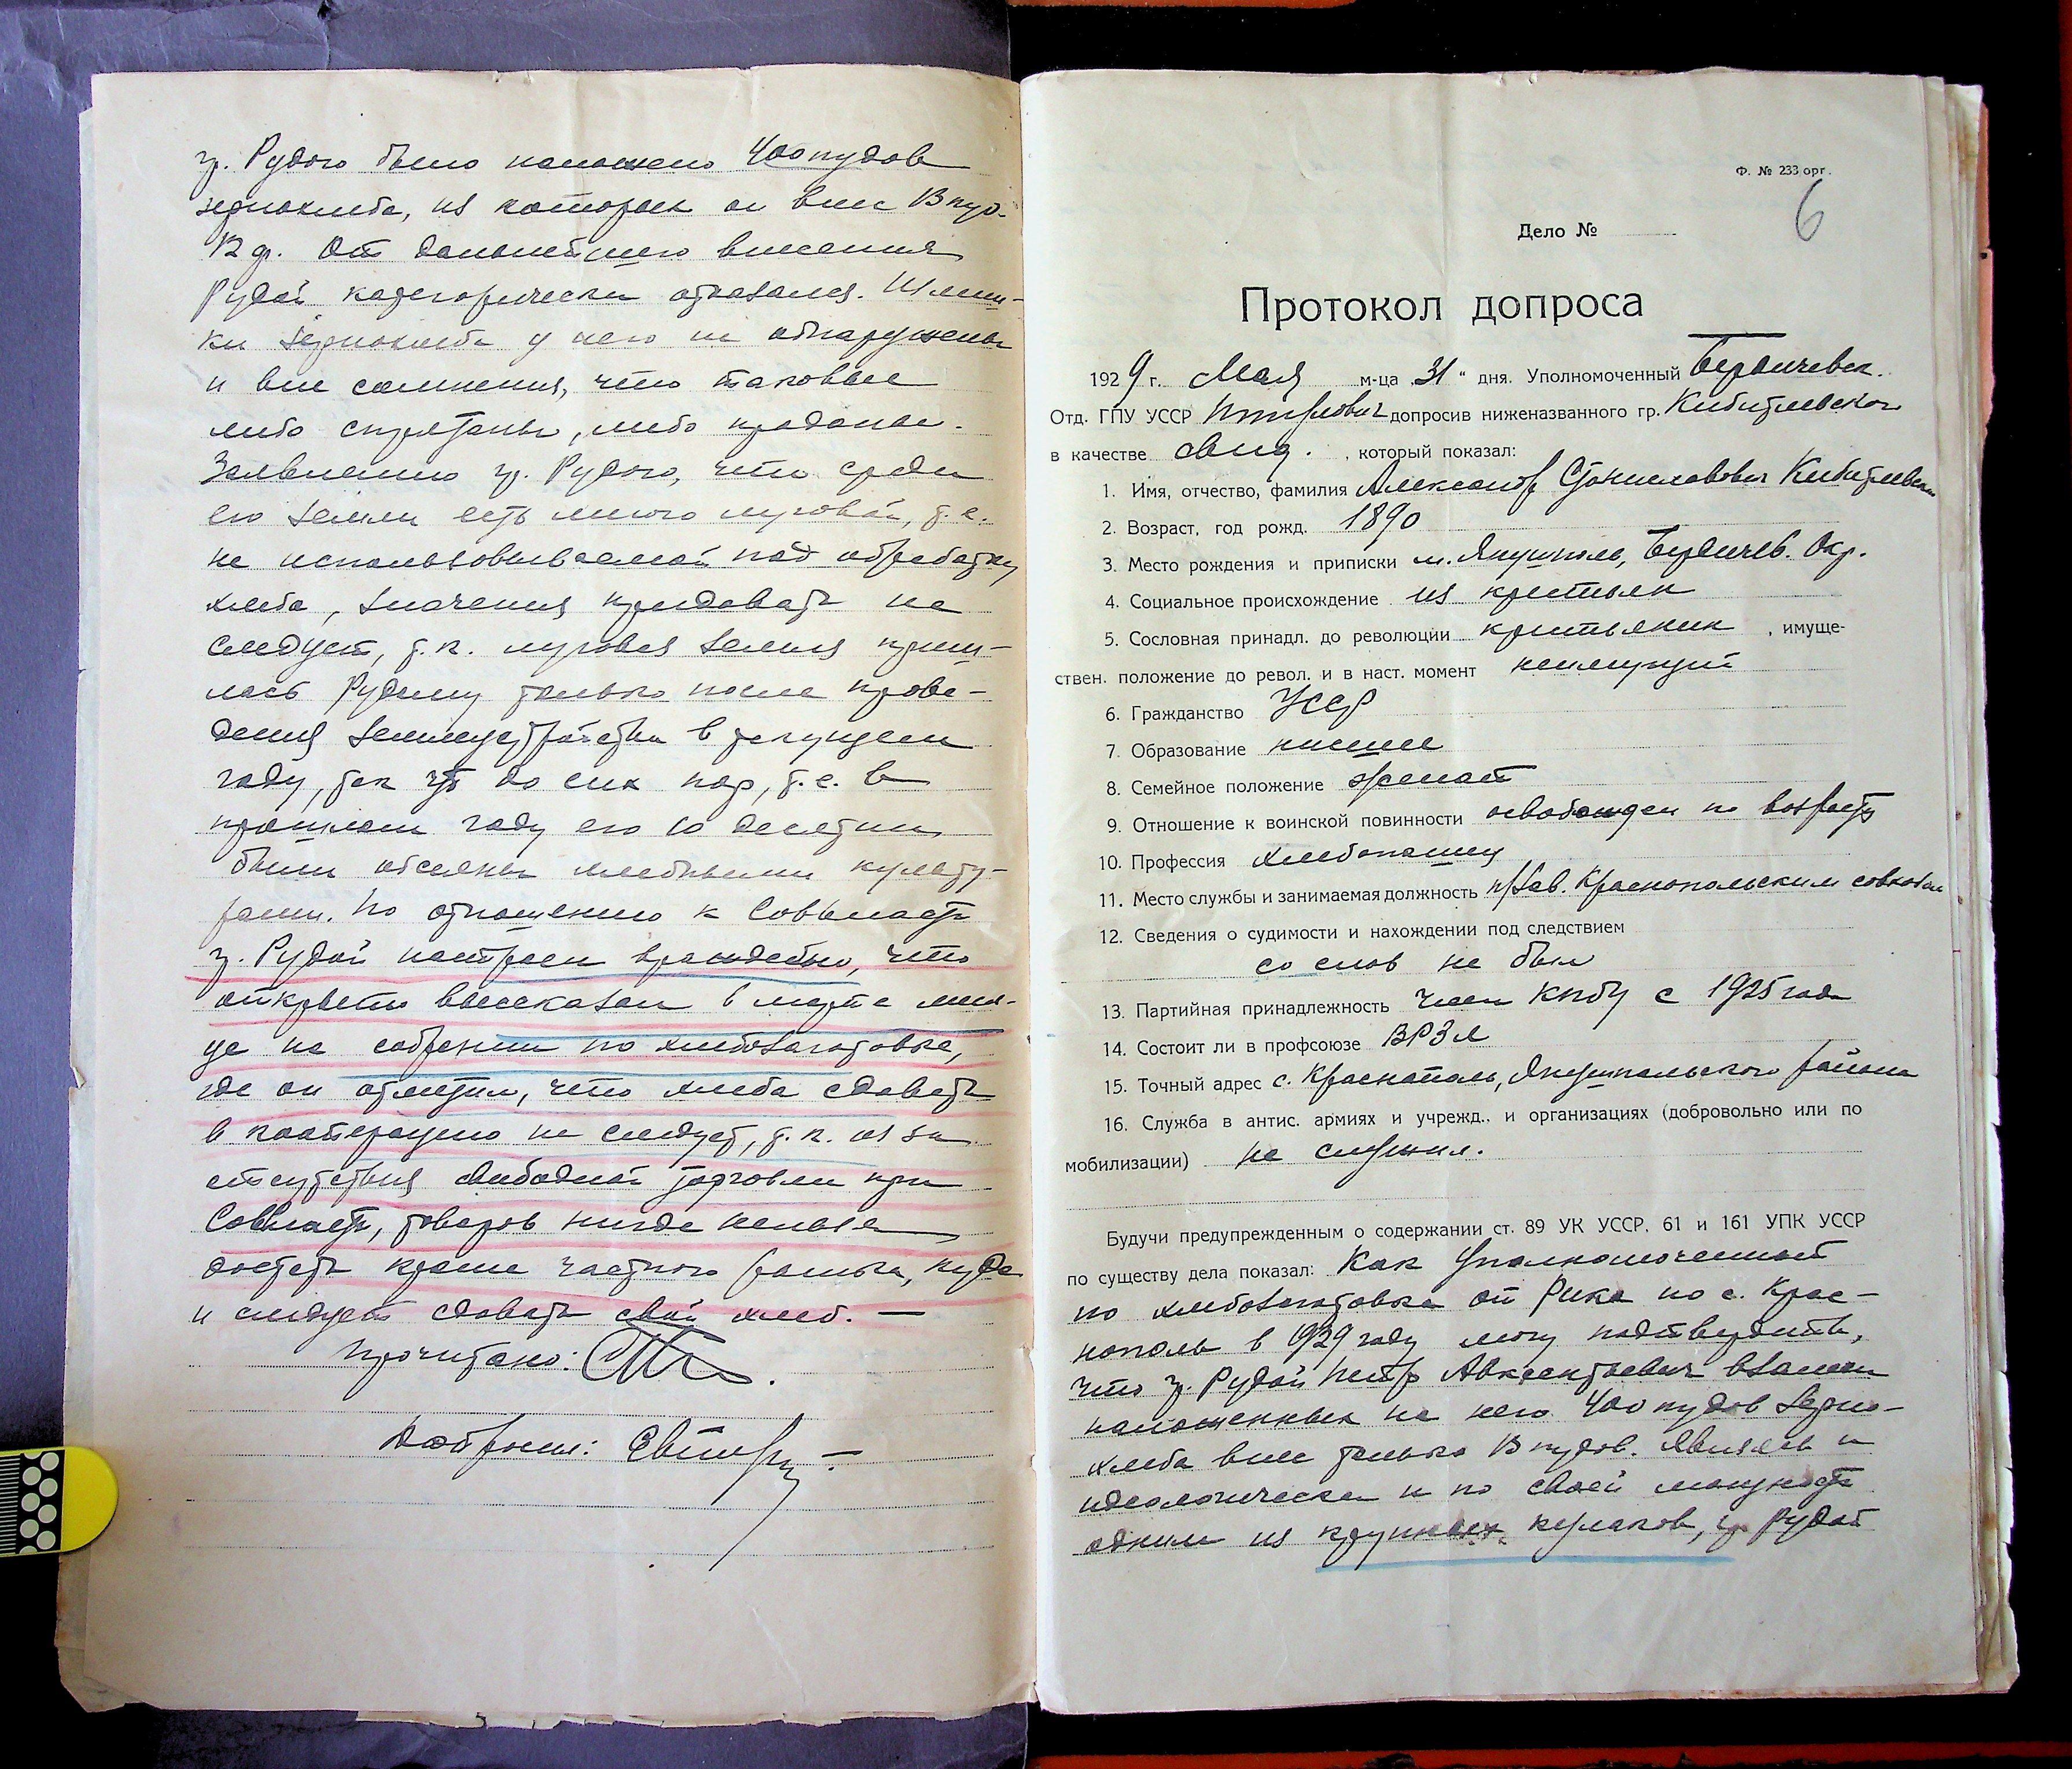 гр. Рудого было наложено 400 пудов
зернохлеба, из которых он внес 13 пуд.
12 ф. От дальнейшего внесения
Рудой категорически отказался. Излиш-
ки зернохлеба у него не обнаружены
и вне сомнения, что таковые
либо спрятаны, либо проданы.
Заявлению гр. Рудого, что среди
его земли есть много луговой, т.е.
не использовываемой под обработку
хлеба, значения придавать не
следует, т.к. луговая земля приш-
лась Рудому только после прове-
дения землеустройства в текущем
году, так что до сих пор, т.е. в
прошлом году его 10 десятин
были обсеяны хлебными культу-
рами. По отношению к Соввласти
гр. Рудой настроен враждебно, что
открыто высказал в марте меся-
це на собрании по хлебозаготовке,
где он отметил, что хлеба сдавать
в кооперацию не следует, т.к. из за
отсутствия свободной торговли при
Соввласти, товаров нигде нельзя
достать кроме частного рынка, куда
и следует сдавать свой хлеб. —
Прочитано:
Допросил:
Ф. № 233 орг.
6
Дело №
Протокол допроса
1929 г. Мая м-ца „31“ дня. Уполномоченный Бердичевск.
Отд. ГПУ УССР допросив ниженазванного гр. Кибитлевского
в качестве свид. , который показал:
1. Имя, отчество, фамилия Александр Станиславович Кибитлевский
2. Возраст, год рожд. 1890
3. Место рождения и приписки м. Янушполь, Бердичев. Окр.
4. Социальное происхождение из крестьян
5. Сословная принадл. до революции крестьянин , имуще-
ствен. положение доревол. и в наст. момент неимущий
6. Гражданство УССР
7. Образование низшее
8. Семейное положение женат
9. Отношение к воинской повинности освобожден по возрасту
10. Профессия хлебопашец
11. Место службы и занимаемая должность п/зав. Краснопольским совхозом
12. Сведения о судимости и нахождении под следствием
со слов не был
13. Партийная принадлежность член КПбУ с 1925 года
14. Состоит ли в профсоюзе ВРЗЛ
15. Точный адрес с. Краснополь, Янушпольского района
16. Служба в антис. армиях и учрежд., и организациях (добровольно или по
мобилизации) не служил.
Будучи предупрежденным о содержании ст. 89 УК УССР, 61 и 161 УПК УССР
по существу дела показал: Как Уполномоченный
по хлебозаготовке от Рика по с. Крас-
нополь в 1929 году могу подтвердить,
что гр. Рудой Петр Авксентьевич взамен
наложенных на него 400 пудов зерно-
хлеба внес только 13 пудов. Являясь и
идеологически и по своей мощности
одним из крупных кулаков, гр. Рудой